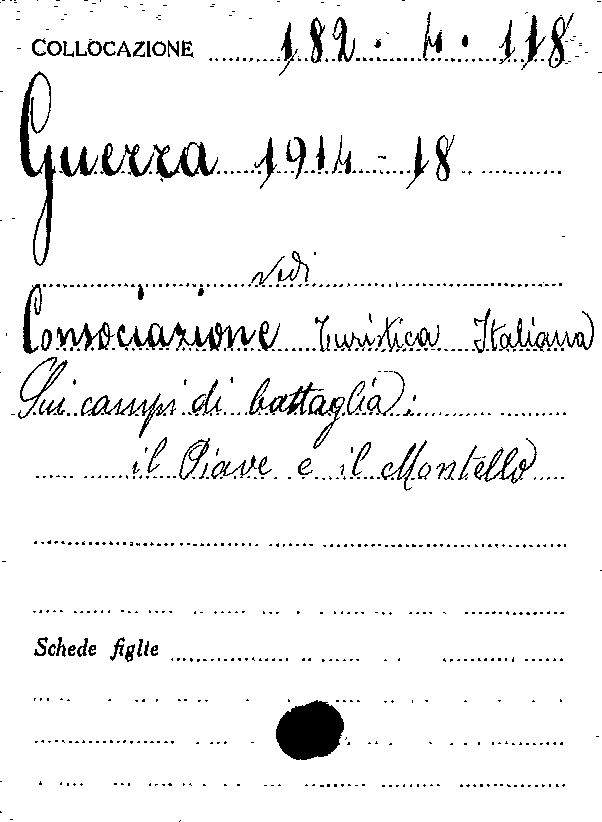 COLLOCAZIONE 182. 4. 118
Guerra 1914-18
vedi
Consociazione Turistica Italiana
Sui campi di battaglia:
il Piave e il Montello
Schede figlie